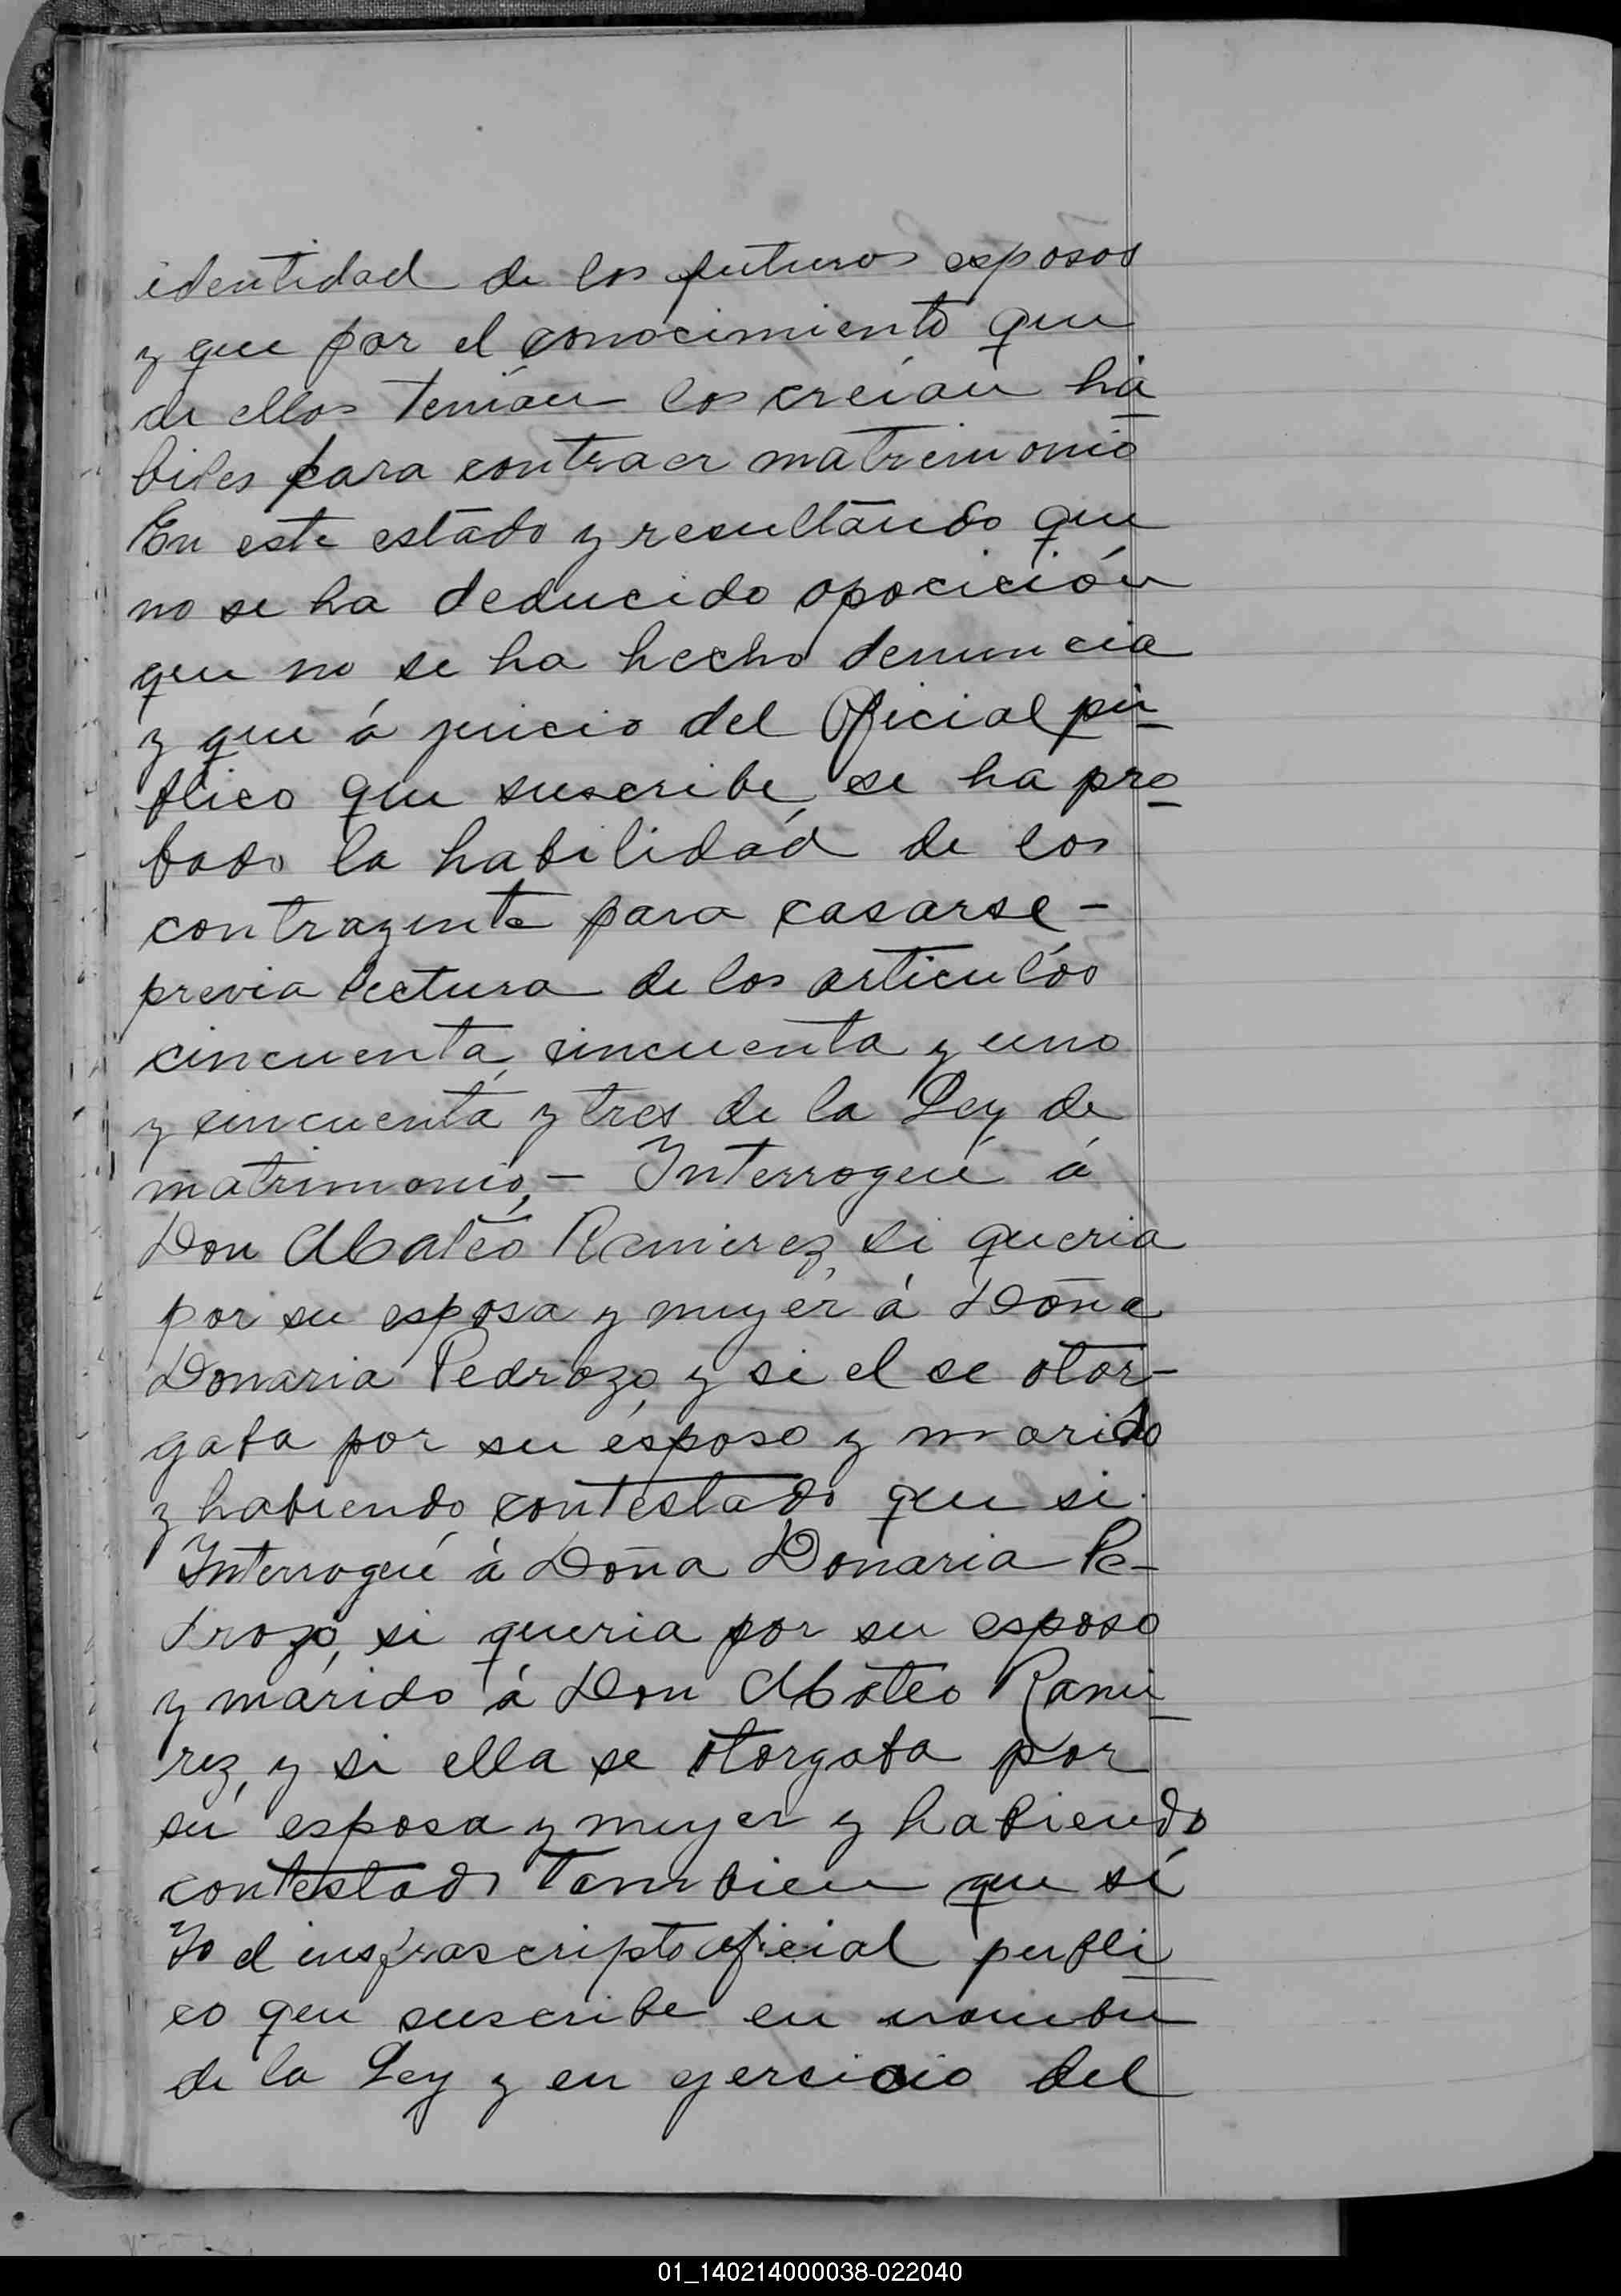 identidad de los futuros esposos
y que por el conocimiento que
de ellos tenían los creían há
biles para contraer matrimonio
En este estado y resultando que
no se ha deducido oposición
que no se ha hecho denuncia
y que á juicio del Oficial pú
blico que suscribe, se ha pro
bado la habilidad de los
contrayente para casarse -
previa lectura de los articulos
cincuenta, cincuenta y uno
y cincuenta y tres de la Ley de
matrimonio, - Interrogué á
Don Mateo Ramirez, si queria
por su esposa y mujer á Doña
Donaria Pedrozo, y si el se otor-
gaba por su esposo y marido
y habiendo contestado que si.
Interrogué á Doña Donaria Pe-
drozo, si queria por su esposo
y marido á Don Mateo Rami
rez, y si ella se otorgaba por
su esposa y mujer y habiendo
contestado tambien que sí
Yo el infrascripto oficial publi
co que suscribe en nombre
de la Ley y en ejercicio del
01_140214000038-022040